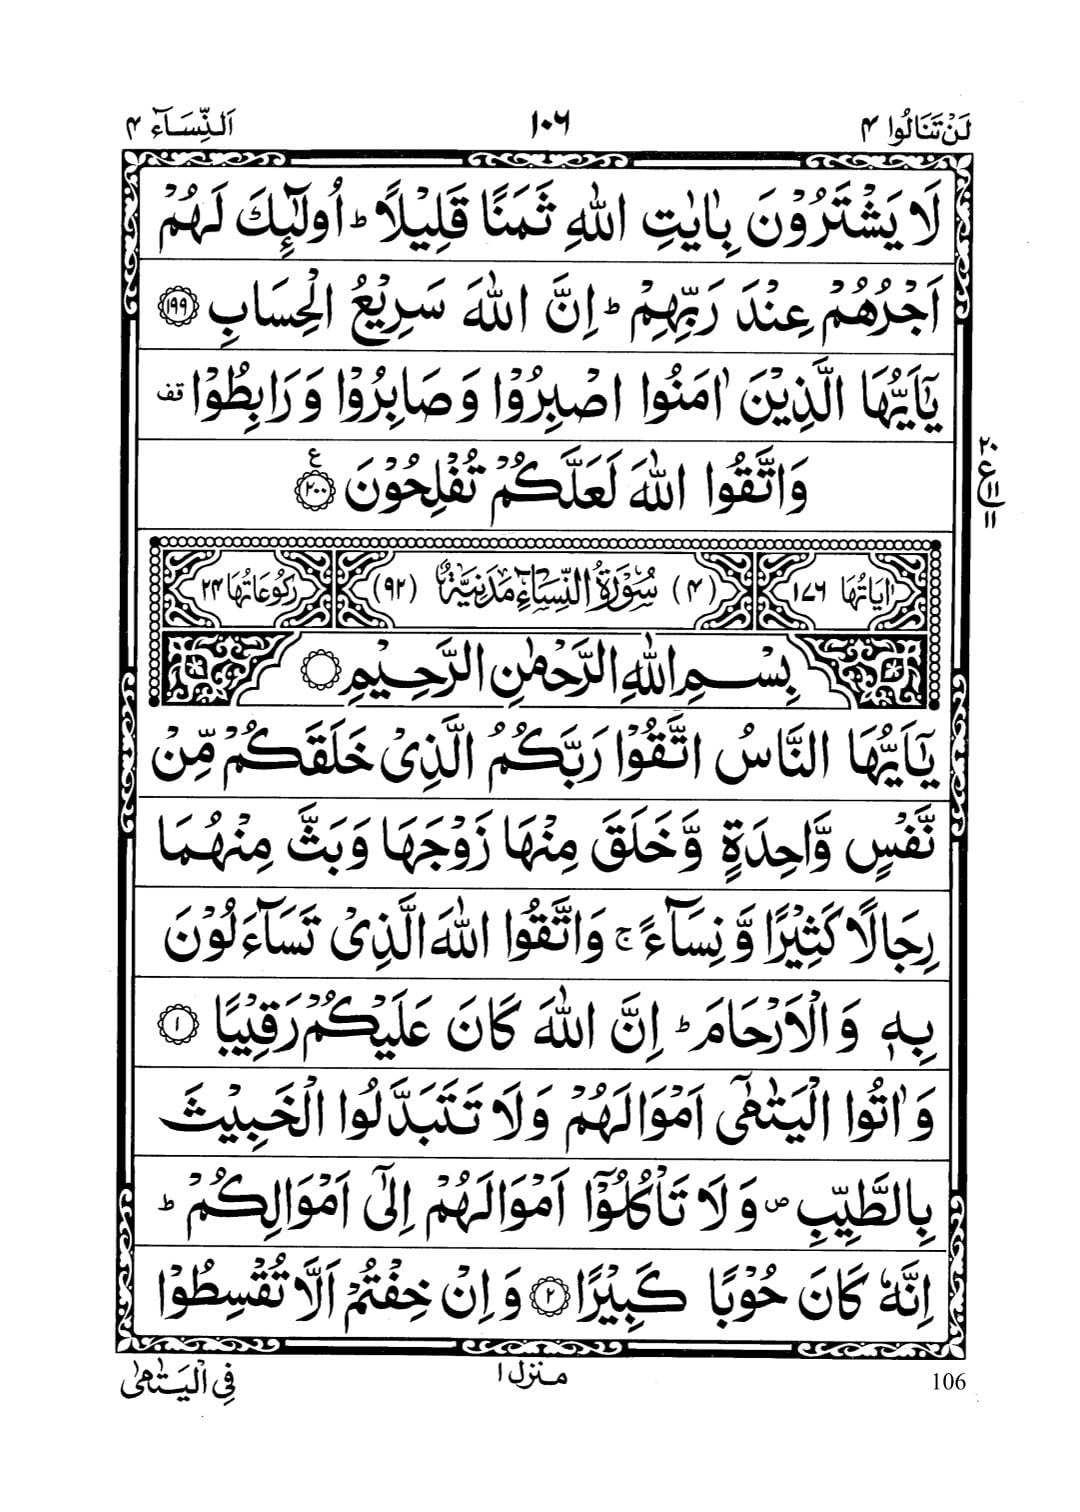 لَنْ تَنَالُوا ۴ ۱۰۶ اَلنِّسَآء ۴
لَا يَشْتَرُوْنَ بِاٰيٰتِ اللّٰهِ ثَمَنًا قَلِيْلًا ؕ اُولٰٓئِكَ لَهُمْ
اَجْرُهُمْ عِنْدَ رَبِّهِمْ ؕ اِنَّ اللّٰهَ سَرِيْعُ الْحِسَابِ ۱۹۹
يٰۤاَيُّهَا الَّذِيْنَ اٰمَنُوا اصْبِرُوْا وَصَابِرُوْا وَرَابِطُوْا قف
وَاتَّقُوا اللّٰهَ لَعَلَّكُمْ تُفْلِحُوْنَ ۲۰۰ ع
۲۰ ع ۱۱ ۱۱
اٰيَاتُهَا ۱۷۶ (۴) سُوْرَةُ النِّسَآءِ مَدَنِيَّةٌ (۹۲) رُكُوْعَاتُهَا ۲۴
بِسْمِ اللّٰهِ الرَّحْمٰنِ الرَّحِيْمِ
يٰۤاَيُّهَا النَّاسُ اتَّقُوْا رَبَّكُمُ الَّذِىْ خَلَقَكُمْ مِّنْ
نَّفْسٍ وَّاحِدَةٍ وَّخَلَقَ مِنْهَا زَوْجَهَا وَبَثَّ مِنْهُمَا
رِجَالًا كَثِيْرًا وَّ نِسَآءً ۚ وَاتَّقُوا اللّٰهَ الَّذِىْ تَسَآءَلُوْنَ
بِهٖ وَالْاَرْحَامَ ؕ اِنَّ اللّٰهَ كَانَ عَلَيْكُمْ رَقِيْبًا ۱
وَاٰتُوا الْيَتٰمٰٓى اَمْوَالَهُمْ وَلَا تَتَبَدَّلُوا الْخَبِيْثَ
بِالطَّيِّبِ ص وَلَا تَاْكُلُوْۤا اَمْوَالَهُمْ اِلٰٓى اَمْوَالِكُمْ ؕ
اِنَّهٗ كَانَ حُوْبًا كَبِيْرًا ۲ وَاِنْ خِفْتُمْ اَلَّا تُقْسِطُوْا
106 منزل ۱ فِى الْيَتٰمٰى